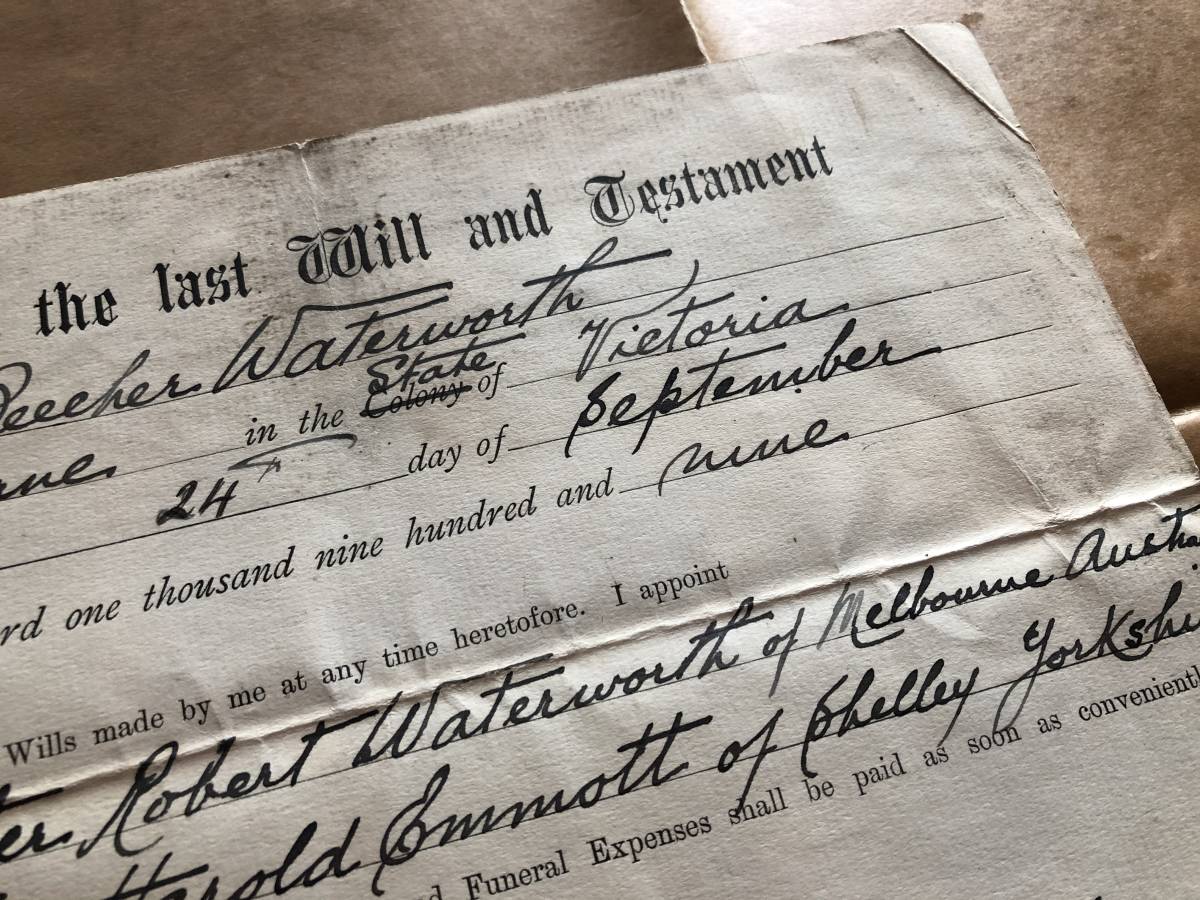 the last Will and Testament
Beecher Waterworth
State
in the Colony of Victoria
24th day of September
one thousand nine hundred and nine
Wills made by me at any time heretofore. I appoint
Robert Waterworth of Melbourne
Harold Emmott of Shelley
Funeral Expenses shall be paid as soon as